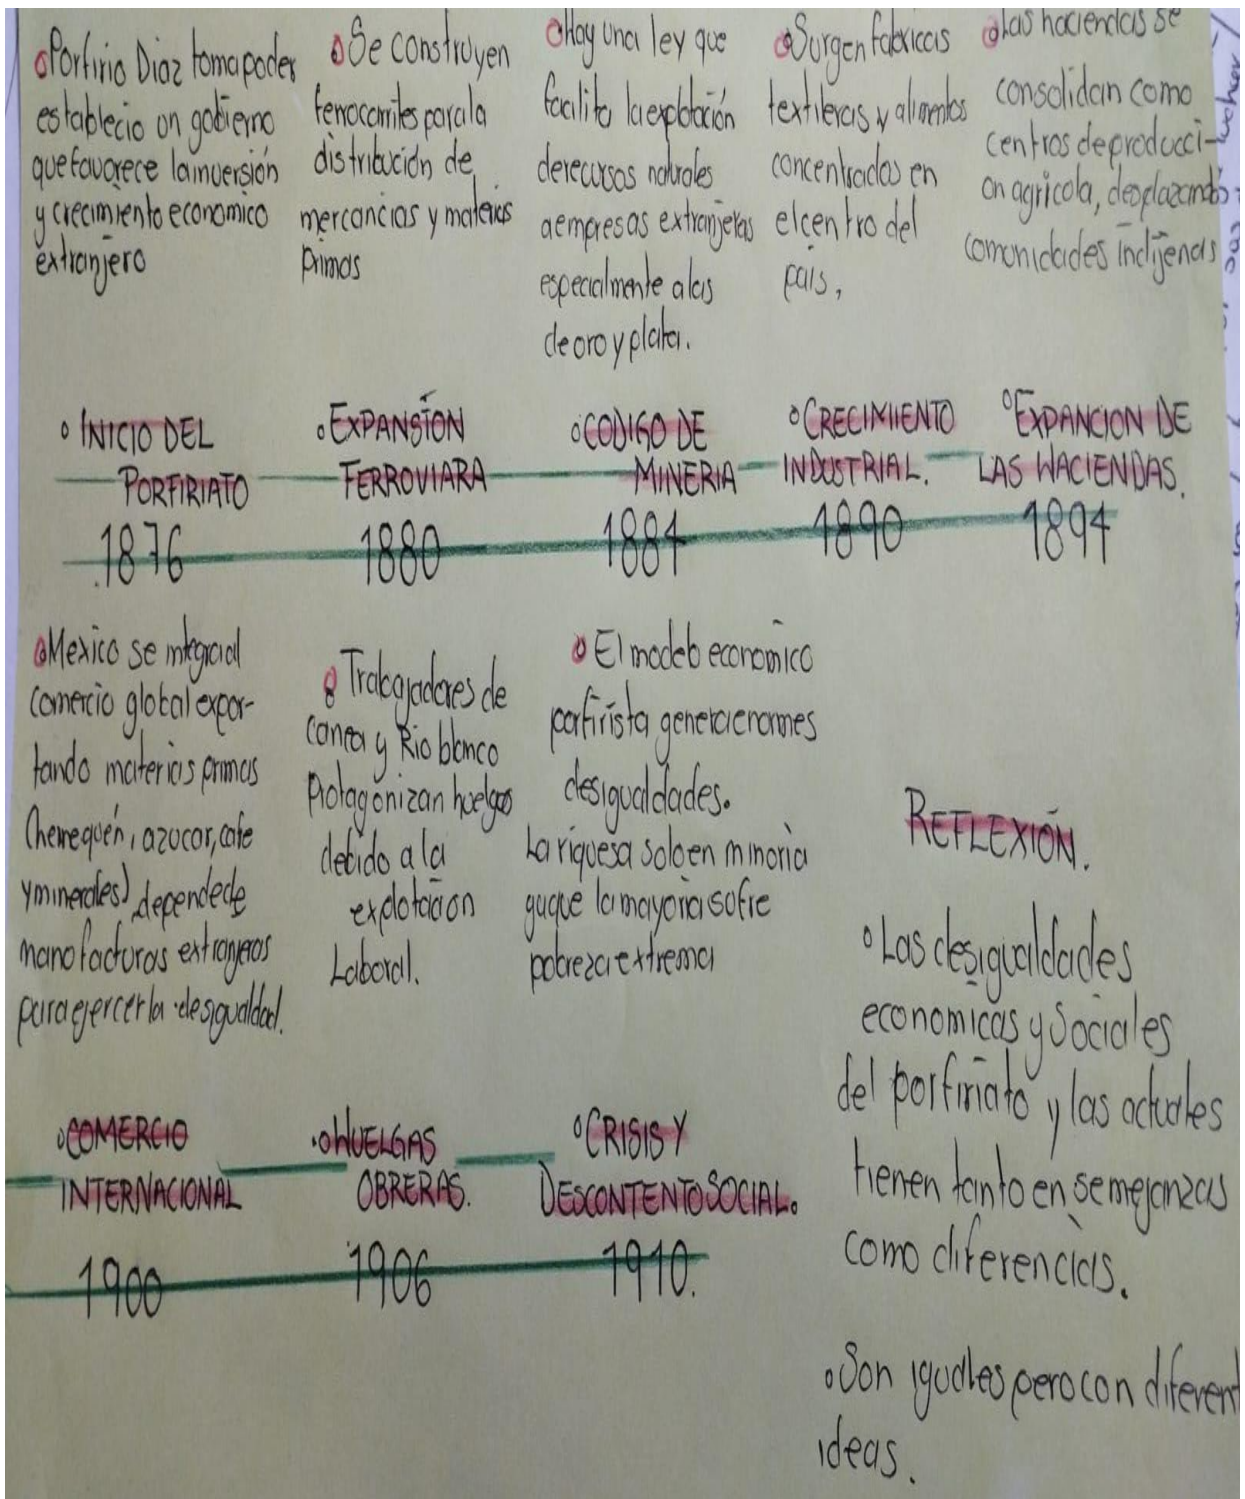 Porfirio Diaz toma poder
establecio un gobierno
que favorece la inversión
y crecimiento economico
extranjero
Se construyen
ferrocarriles para la
distribución de
mercancias y materias
primas
Hay una ley que
facilita la explotación
de recursos naturales
a empresas extranjeras
especialmente a las
de oro y plata.
Surgen fabricas
textileras y alimentos
concentrados en
el centro del
país,
Las haciendas se
consolidan como
centros de producci-
on agricola, desplazando
comunidades indijenas
INICIO DEL
PORFIRIATO
1876
EXPANSIÓN
FERROVIARA
1880
CODIGO DE
MINERIA
1884
CRECIMIENTO
INDUSTRIAL.
1890
EXPANCION DE
LAS HACIENDAS.
1894
Mexico se integra al
comercio global expor-
tando materias primas
(henequén, azucar, cafe
y minerales) depende de
manofacturas extranjeras
para ejercer la desigualdad.
Trabajadores de
canea y Rio blanco
Protagonizan huelgas
debido a la
explotación
Laboral.
El modelo económico
porfirista genera enormes
desigualdades.
La riquesa solo en minoria
ya que la mayoria sufre
pobreza extrema
COMERCIO
INTERNACIONAL
1900
HUELGAS
OBRERAS.
1906
CRISIS Y
DESCONTENTO SOCIAL.
1910.
REFLEXIÓN.
Las desigualdades
economicas y sociales
del porfiriato y las actuales
tienen tanto en semejanzas
como diferencias.
Son iguales pero con diferent
ideas.